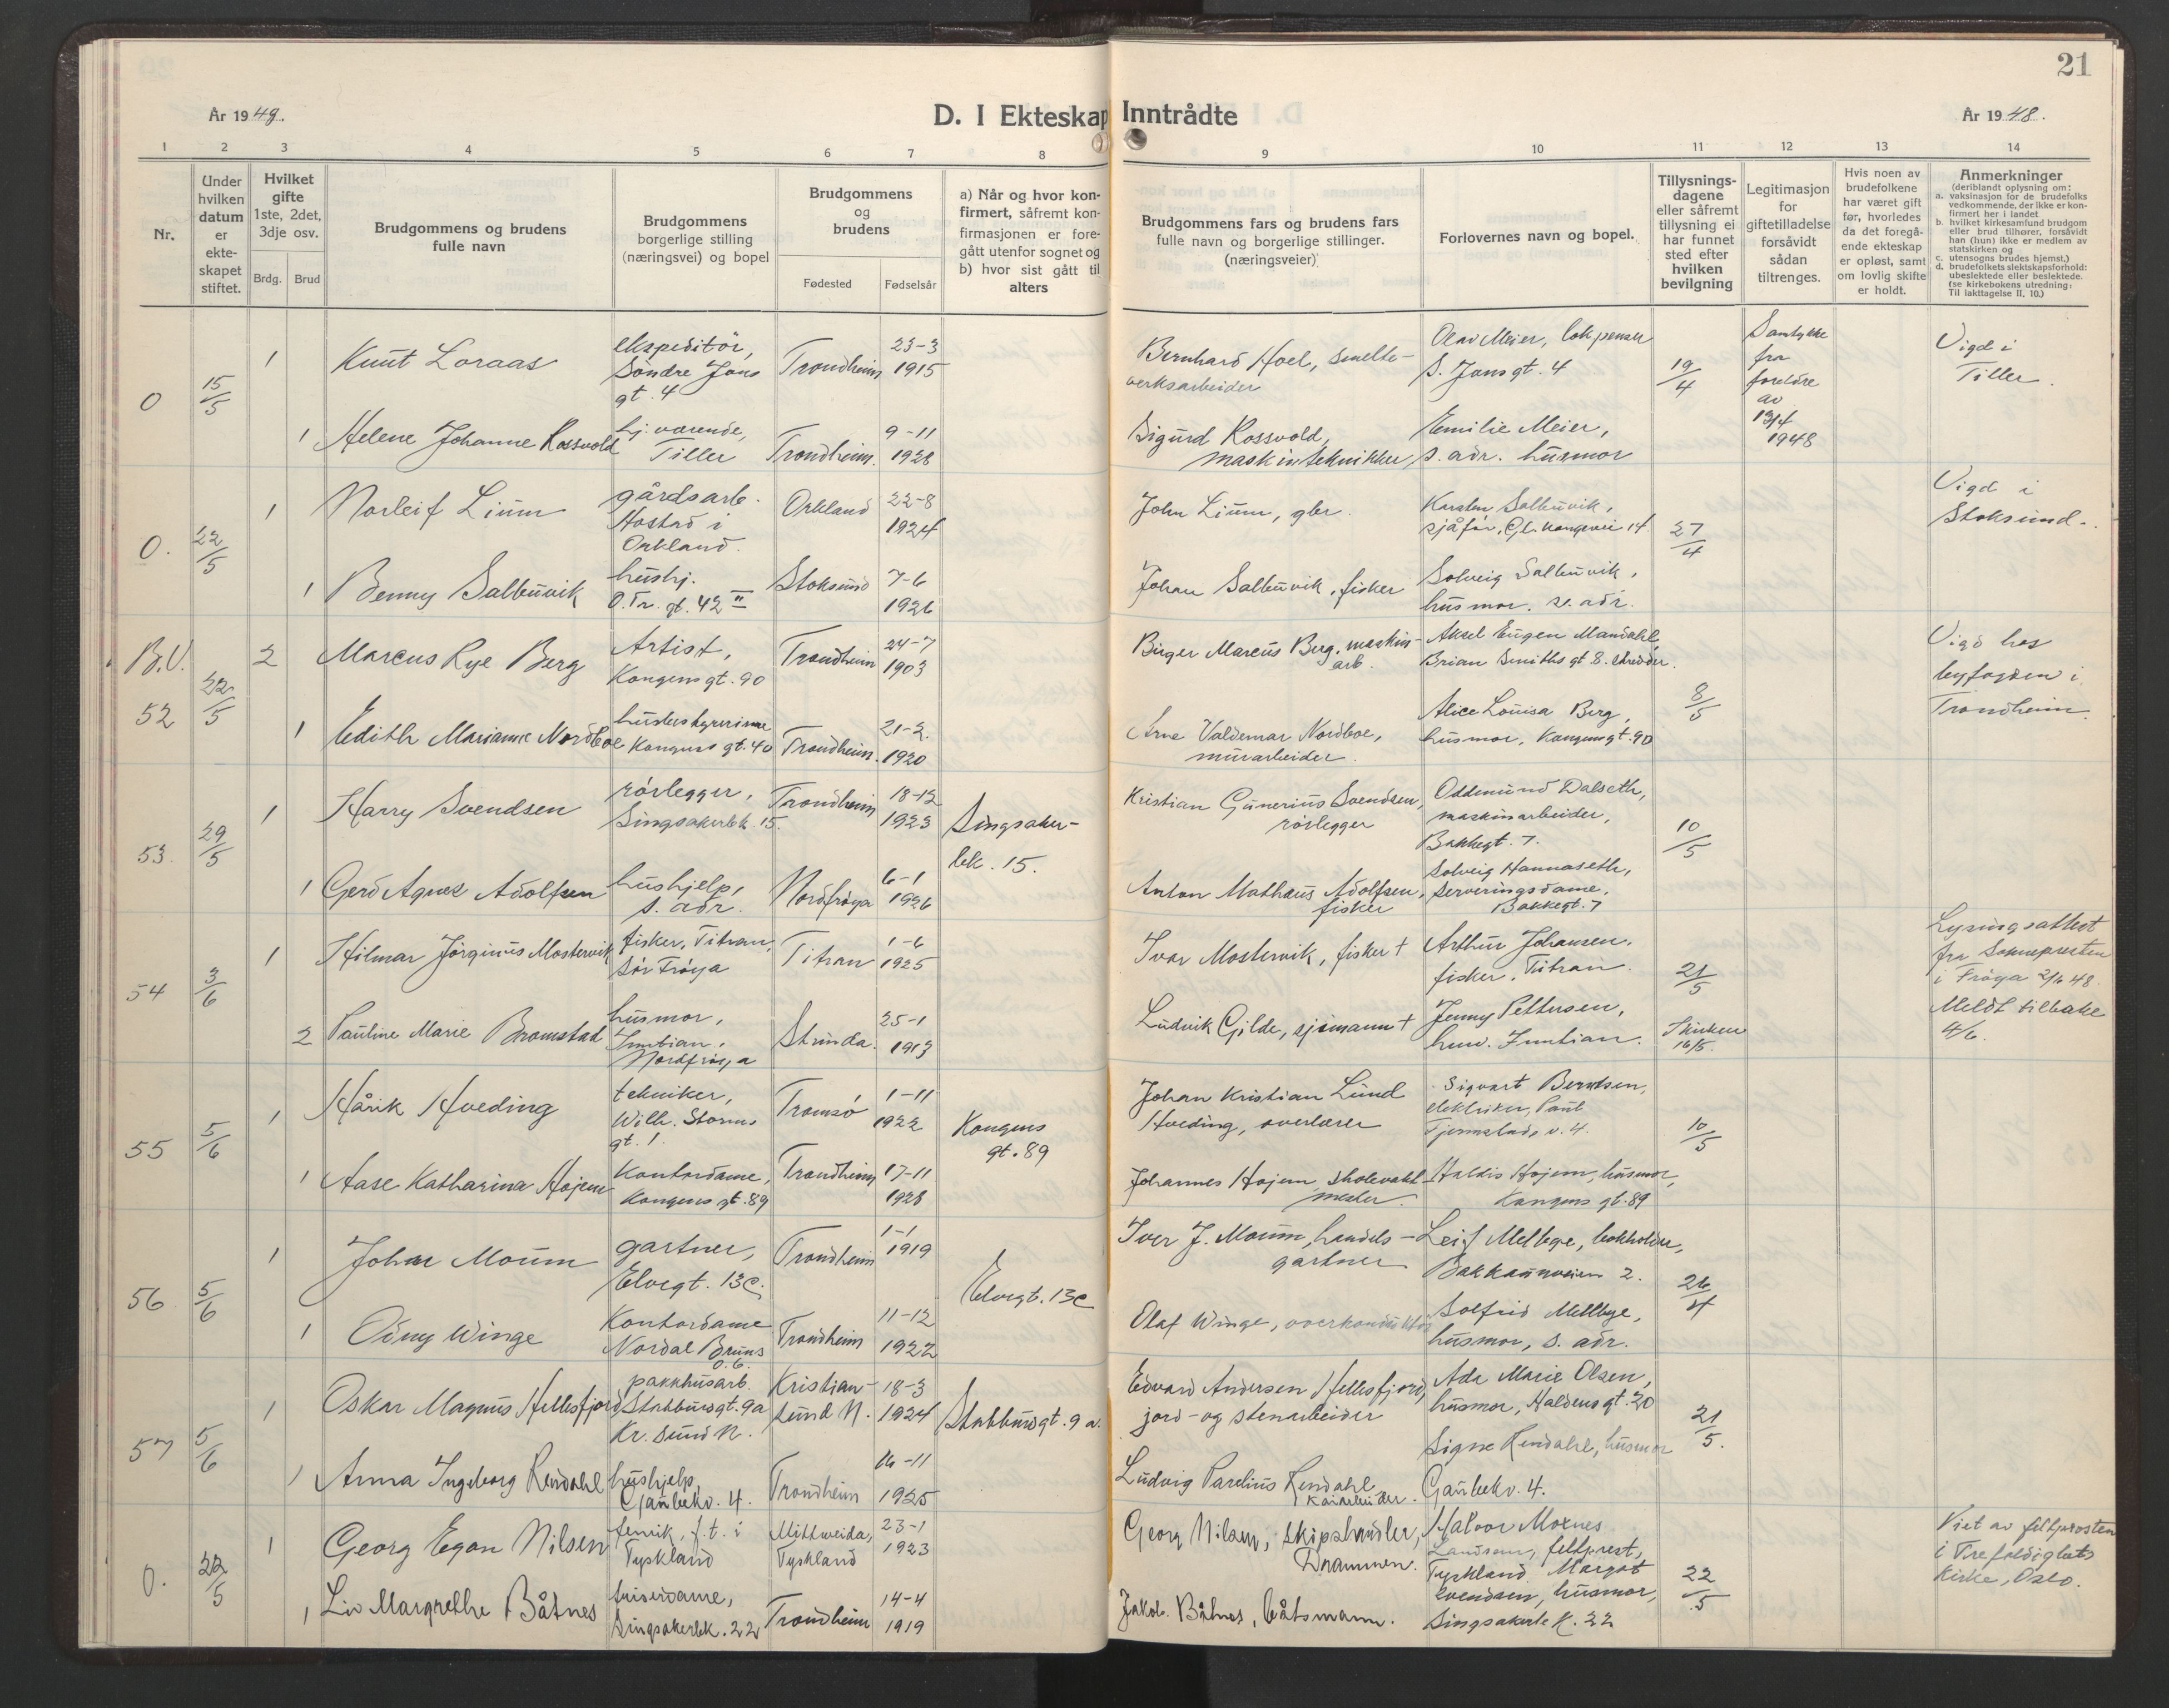 21
År 1948.
D. I Ekteskap Inntrådte
År 1948.
1 2 3 4 5 6 7 8 9 10 11 12 13 14
Nr.
Under hvilken datum er ekte-skapet stiftet.
Hvilket gifte 1ste, 2det, 3dje osv.
Brdg. Brud
Brudgommens og brudens fulle navn
Brudgommens borgerlige stilling (næringsvei) og bopel
Brudgommens og brudens
Fødested Fødselsår
a) Når og hvor kon-firmert, såfremt kon-firmasjonen er fore-gått utenfor sognet og b) hvor sist gått til alters
Brudgommens fars og brudens fars fulle navn og borgerlige stillinger. (næringsveier)
Forlovernes navn og bopel.
Tillysnings-dagene eller såfremt tillysning ei har funnet sted efter hvilken bevilgning
Legitimasjon for giftetilladelse forsåvidt sådan tiltrenges.
Hvis noen av brudefolkene har været gift før, hvorledes da det foregå-ende ekteskap er opløst, samt om lovlig skifte er holdt.
Anmerkninger
(deriblandt oplysning om:
a. vaksinasjon for de brudefolks vedkommende, der ikke er kon-firmert her i landet
b. hvilket kirkesamfund brudgom eller brud tilhører, forsåvidt han (hun) ikke er medlem av statskirken og
c. utensogns brudes hjemst.)
d. brudefolkets slektskapsforhold: ubeslektede eller beslektede. (se kirkebokens utredning: Til iakttagelse II. 10.)
0 15/5
1 Knut Loraas ekspeditør, Søndre Jons gt. 4 Trondheim 23-3 1915
Bernhard Hoel, smelte-verksarbeider
Olav Meier, lok.pusser S. Jonsgt. 4
19/4
Samtykke fra foreldre av 13/4 1948
Vigd i Tiller.
1 Helene Johanne Rossvold hj. værende, Tiller Trondheim. 9-11 1928
Sigurd Rossvold, maskintekniker
Emilie Meier, s. adr. husmor
0. 22/5
1 Norleif Lium gårdsarb. Hostad i Orkland. Orkland 22-8 1924
John Lium, gbr.
Karsten Salbuvik, sjåfør, Gl. kongevei 14
27/4
Vigd i Stoksund.
1 Benny Salbuvik hushj. O.Tr. gt. 42 II Stoksund 7-6 1926
Johan Salbuvik, fisker
Solveig Salbuvik, husmor. s. adr.
B.V. 52 22/5
2 Marcus Rye Berg Artist, Kongensgt. 90 Trondheim 24-7 1903
Birger Marcus Berg, maskin-arb.
Aksel Eugen Mandahl, Brian Smiths gt 8. skredder.
8/5
Vigd hos byfogden i Trondheim.
1 Edith Marianne Nordboe husbestyrerinne Kongens gt. 40 Trondheim. 21-2. 1920
Arne Valdemar Nordboe, murarbeider.
Alice Louisa Berg, husmor, Kongensgt. 90
53. 29/5
1 Harry Svendsen rørlegger, Singsakerbk 15. Trondheim 18-12 1923
Singsaker-bk. 15.
Kristian Gunerius Svendsen, rørlegger
Oddmund Dalseth, maskinarbeider, Bakkegt. 7.
10/5
1 Gerd Agnes Adolfsen hushjelp, s. adr. Nordfrøya 6-1 1926
Anton Mathæus Adolfsen, fisker
Solveig Hannaseth, serveringsdame, Bakkegt. 7
54 3/6
1 Hilmar Jørginus Mostervik fisker, Titran, Sør Frøya Titran 1-6 1925
Ivar Mostervik, fisker †
Arthur Johansen, fisker. Titran.
21/5
Lysingsattest fra Soknepresten i Frøya 2/6 48. Meldt tilbake 4/6.
2 Pauline Marie Bromstad husmor, Inntian, Nordfrøya Strinda. 25-1 1913
Ludvik Gilde, sjømann †
Jenny Pettersen, husm. Inntian.
I kirken 16/5.
55 5/6
1 Hårik Hveding tekniker, Wilh. Storms gt. 1. Tromsø 1-11 1922
Kongens gt. 89
Johan Kristian Lund Hveding, overlærer
Sigvart Berntsen, elektriker, Paul Fjermstads v. 4.
10/5
1 Aase Katharina Højem Kontordame, Kongens gt. 89 Trondheim 17-11 1928
Johannes Højem, skolevakt-mester.
Haldis Højem, husmor, Kongens gt. 89
56. 5/6
1 Johan Moum gartner, Elvegt. 13c. Trondheim 1-1 1919
Elvegt. 13c
Iver J. Moum, handels-gartner
Leif Mellbye, bokholder, Bakkaunveien 2.
26/4
1 Oiny Winge Kontordame Nordal Bruns v. 6. Trondheim 11-12 1922
Olaf Winge, overkonduktør
Solfrid Mellbye, husmor, s. adr.
57 5/6
1 Oskar Magnus Hellesfjord pakkhusarb. Stabbursgt. 9a Kr. sund N. Kristian-sund N. 18-3 1924
Stabbursgt. 9a.
Edvard Andersen Hellesfjord, jord- og stenarbeider
Ada Marie Olsen, husmor, Haldensgt. 20
21/5.
1 Anna Ingeborg Rendahl hushjelp, Gaubekv. 4. Trondheim 16-11 1925
Ludvig Parelius Rendahl kaiarbeider.
Signe Rendahl, husmor Gaubekv. 4.
0. 22/5
1 Georg Egon Nilsen fenrik, f.t. i Tyskland Mittweida, Tyskland 23-1 1923
Georg Nilsen, skipshandler, Drammen.
Halvor Moxnes Landsem, feltprest, Tyskland. Margot Svendsen, husmor, Singsakerbk. 22
22/5
Viet av feltprosten i Trefoldighets kirke, Oslo.
1 Liv Margrethe Båtnes frisørdame, Singsakerbk. 22 Trondheim 14-4 1919
Jakob Båtnes, båtsmann.